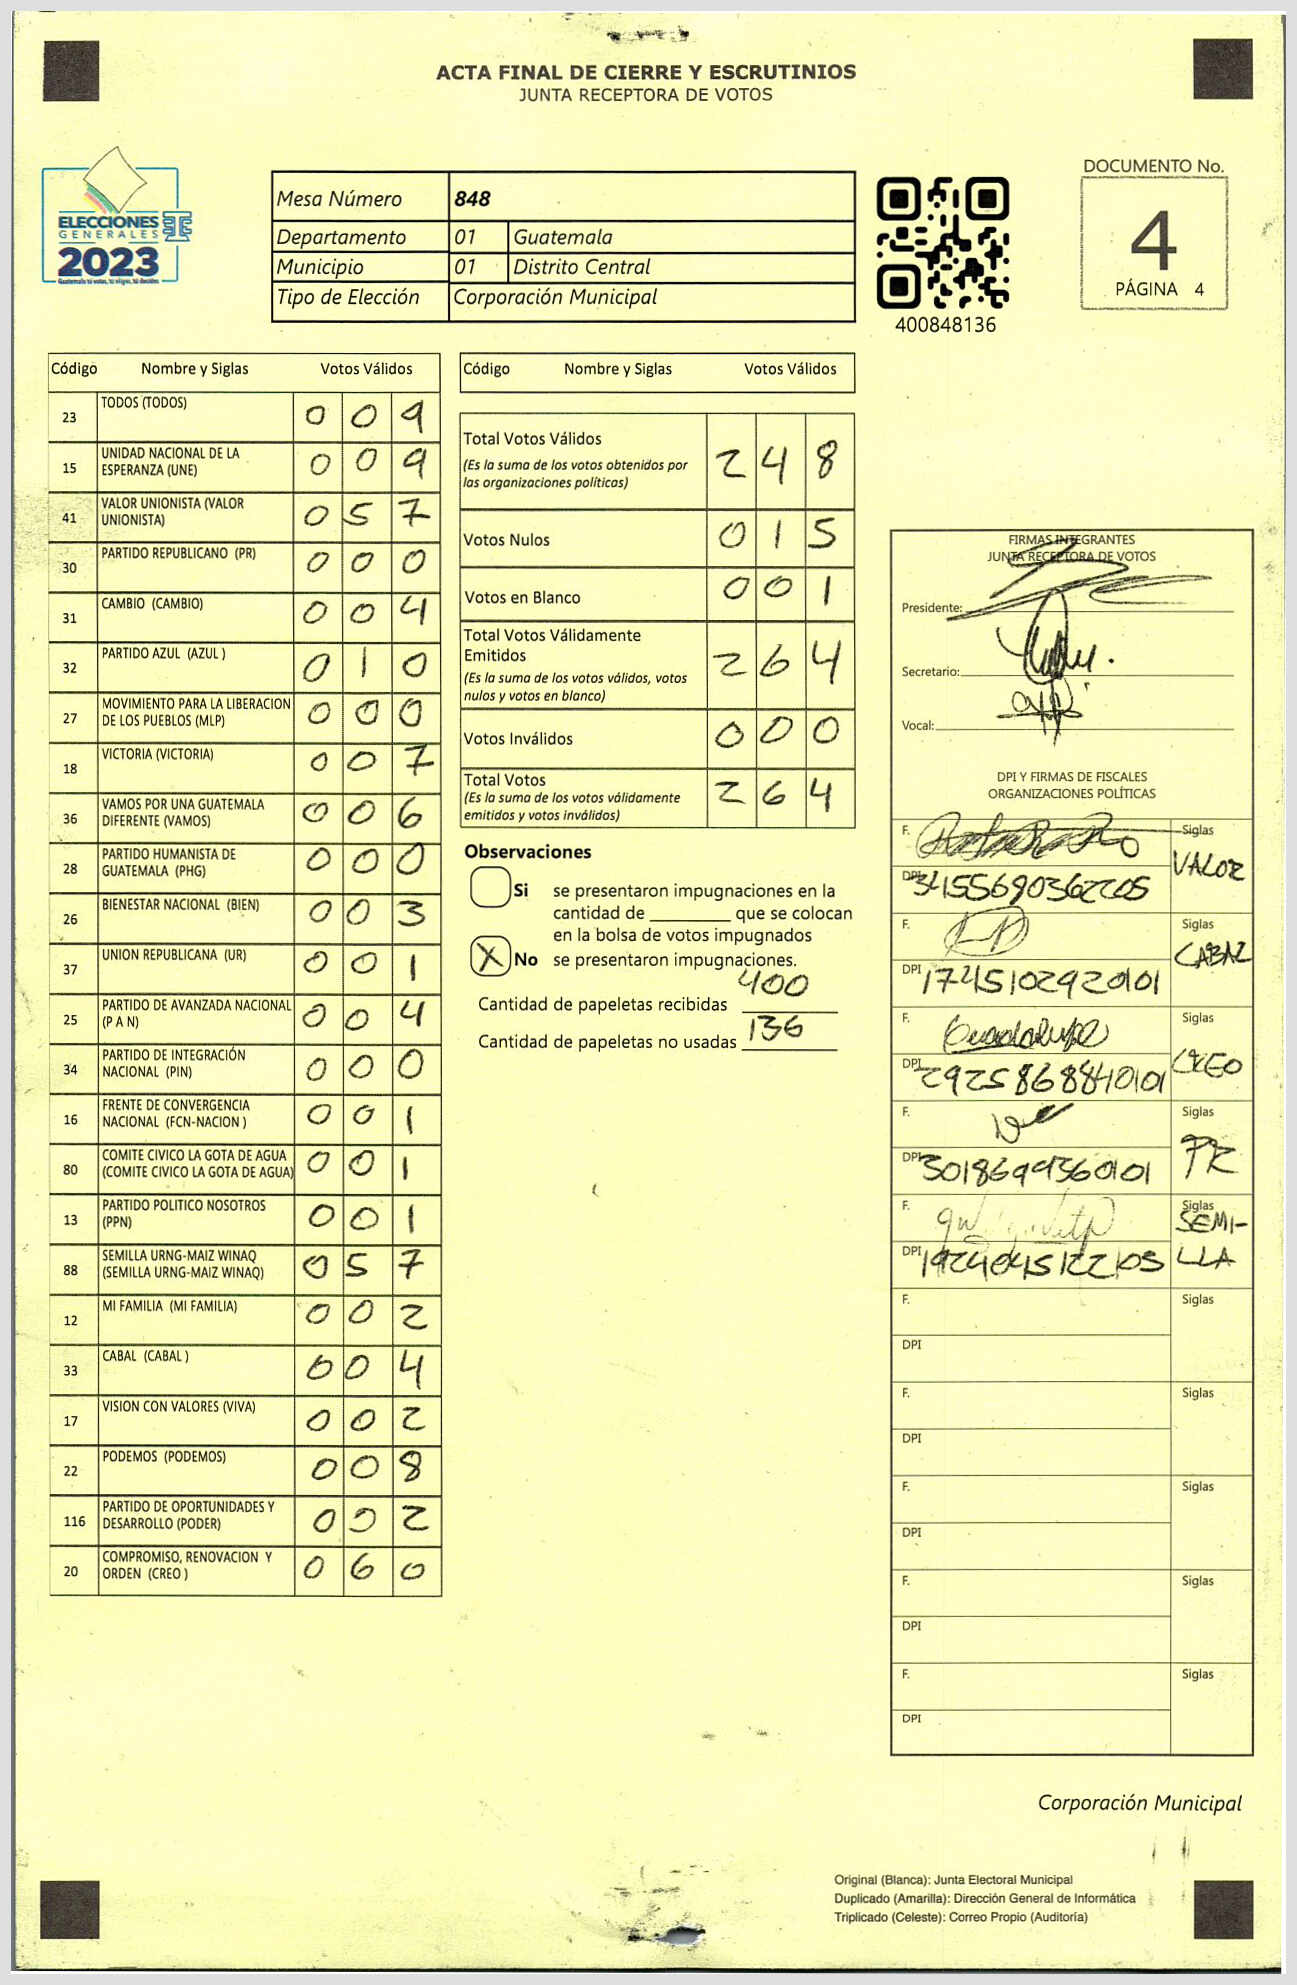 ACTA FINAL DE CIERRE Y ESCRUTINIOS
JUNTA RECEPTORA DE VOTOS
ELECCIONES
GENERALES
2023
Mesa Número 848
Departamento 01 Guatemala
Municipio 01 Distrito Central
Tipo de Elección Corporación Municipal
400848136
DOCUMENTO No.
4
PÁGINA 4
Código Nombre y Siglas Votos Válidos
23 TODOS (TODOS) 0 0 9
15 UNIDAD NACIONAL DE LA
ESPERANZA (UNE) 0 0 9
41 VALOR UNIONISTA (VALOR
UNIONISTA) 0 5 7
30 PARTIDO REPUBLICANO (PR) 0 0 0
31 CAMBIO (CAMBIO) 0 0 4
32 PARTIDO AZUL (AZUL ) 0 1 0
27 MOVIMIENTO PARA LA LIBERACION
DE LOS PUEBLOS (MLP) 0 0 0
18 VICTORIA (VICTORIA) 0 0 7
36 VAMOS POR UNA GUATEMALA
DIFERENTE (VAMOS) 0 0 6
28 PARTIDO HUMANISTA DE
GUATEMALA (PHG) 0 0 0
26 BIENESTAR NACIONAL (BIEN) 0 0 3
37 UNION REPUBLICANA (UR) 0 0 1
25 PARTIDO DE AVANZADA NACIONAL
(P A N) 0 0 4
34 PARTIDO DE INTEGRACIÓN
NACIONAL (PIN) 0 0 0
16 FRENTE DE CONVERGENCIA
NACIONAL (FCN-NACION ) 0 0 1
80 COMITE CIVICO LA GOTA DE AGUA
(COMITE CIVICO LA GOTA DE AGUA) 0 0 1
13 PARTIDO POLITICO NOSOTROS
(PPN) 0 0 1
88 SEMILLA URNG-MAIZ WINAQ
(SEMILLA URNG-MAIZ WINAQ) 0 5 7
12 MI FAMILIA (MI FAMILIA) 0 0 2
33 CABAL (CABAL ) 0 0 4
17 VISION CON VALORES (VIVA) 0 0 2
22 PODEMOS (PODEMOS) 0 0 8
116 PARTIDO DE OPORTUNIDADES Y
DESARROLLO (PODER) 0 0 2
20 COMPROMISO, RENOVACION Y
ORDEN (CREO ) 0 6 0
Código Nombre y Siglas Votos Válidos
Total Votos Válidos 2 4 8
(Es la suma de los votos obtenidos por
las organizaciones políticas)
Votos Nulos 0 1 5
Votos en Blanco 0 0 1
Total Votos Válidamente
Emitidos 2 6 4
(Es la suma de los votos válidos, votos
nulos y votos en blanco)
Votos Inválidos 0 0 0
Total Votos 2 6 4
(Es la suma de los votos válidamente
emitidos y votos inválidos)
Observaciones
Si se presentaron impugnaciones en la
cantidad de ________ que se colocan
en la bolsa de votos impugnados
X No se presentaron impugnaciones.
Cantidad de papeletas recibidas 400
Cantidad de papeletas no usadas 136
FIRMAS INTEGRANTES
JUNTA RECEPTORA DE VOTOS
Presidente:
Secretario:
Vocal:
DPI Y FIRMAS DE FISCALES
ORGANIZACIONES POLÍTICAS
F. Siglas
VALOR
DPI
F. Siglas
CABAL
DPI 1745102920101
F. Guadalupe Siglas
CREO
DPI 2925868840101
F. Siglas
PR
DPI 3018699360101
F. Siglas
SEMI-
LLA
DPI
F. Siglas
DPI
F. Siglas
DPI
F. Siglas
DPI
F. Siglas
DPI
F. Siglas
DPI
Corporación Municipal
Original (Blanca): Junta Electoral Municipal
Duplicado (Amarilla): Dirección General de Informática
Triplicado (Celeste): Correo Propio (Auditoría)